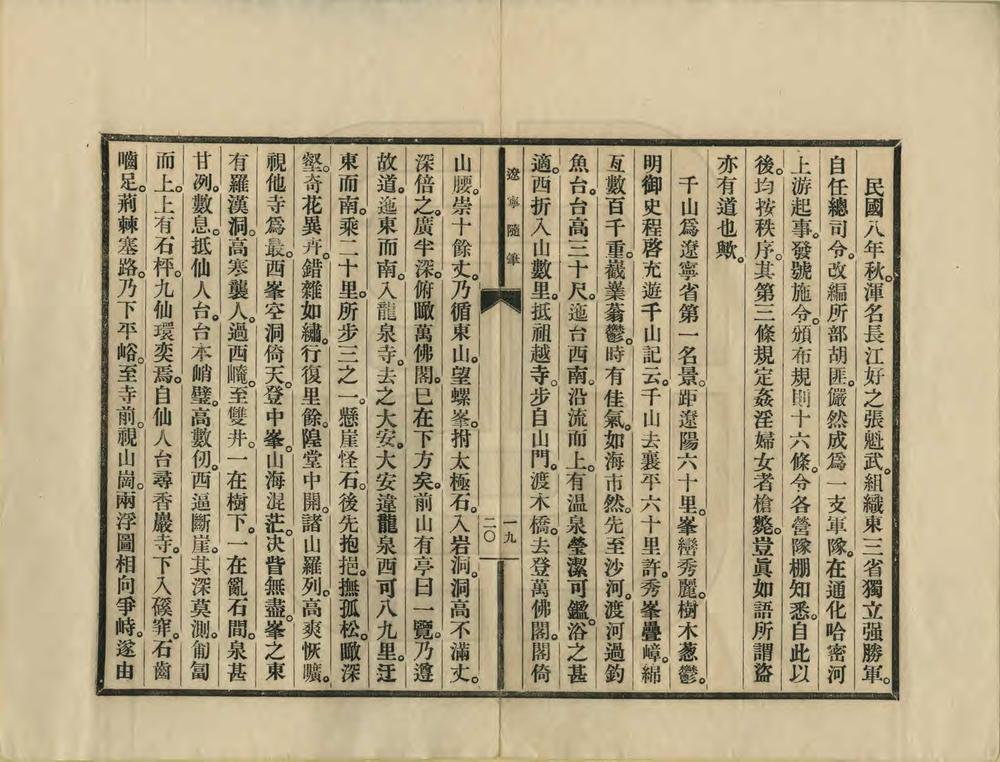 民國八年秋。渾名長江好之張魁武。組織東三省獨立强勝軍。
自任總司令。改編所部胡匪。儼然成爲一支軍隊。在通化哈密河
上游起事。發號施令。頒布規則十六條。令各營隊棚知悉。自此以
後。均按秩序。其第三條規定姦淫婦女者槍斃。豈眞如語所謂盜
亦有道也歟。
千山爲遼寧省第一名景。距遼陽六十里。峯巒秀麗。樹木葱鬱。
明御史程啓充遊千山記云。千山去襄平六十里許。秀峯疊嶂。綿
亙數百千重。巀嶪蓊鬱。時有佳氣。如海市然。先至沙河。渡河過釣
魚台。台高三十尺。迤台西南。沿流而上。有温泉。瑩潔可鑑。浴之甚
適。西折入山數里。抵祖越寺。步自山門。渡木橋。去登萬佛閣。閣倚
遼寧隨筆
一九
二〇
山腰。崇十餘丈。乃循東山。望螺峯。拊太極石。入岩洞。洞高不滿丈。
深倍之。廣半深。俯瞰萬佛閣。已在下方矣。前山有亭曰一覽。乃遵
故道。迤東而南。入龍泉寺。去之大安。大安違龍泉西可八九里。迋
東而南。乘二十里。所步三之一。懸崖怪石。後先抱挹。撫孤松。瞰深
壑。奇花異卉。錯雜如繡。行復里餘。隍堂中開。諸山羅列。高爽恢曠。
視他寺爲最。西峯空洞倚天。登中峯。山海混茫。决眥無盡。峯之東
有羅漢洞。高寒襲人。過西崦。至雙井。一在樹下。一在亂石間。泉甚
甘冽。數息抵仙人台。台本峭壁。高數仞。西逼斷崖。其深莫測。匍匐
而上。上有石枰。九仙環奕焉。自仙人台尋香巖寺。下入篠穽。石齒
嚙足。荊棘塞路。乃下平峪。至寺前。視山崗。兩浮圖相向爭峙。遂由